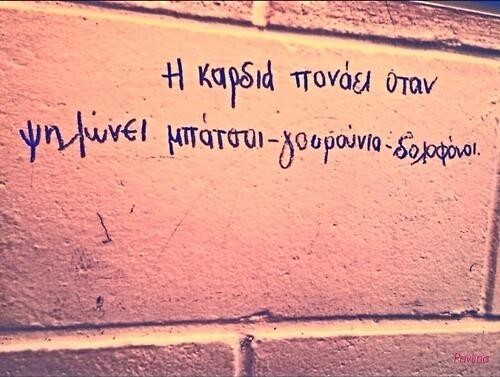 Η καρδιά πονάει όταν
ψηλώνει μπάτσοι-γουρούνια-δολοφόνοι.
Pavlina